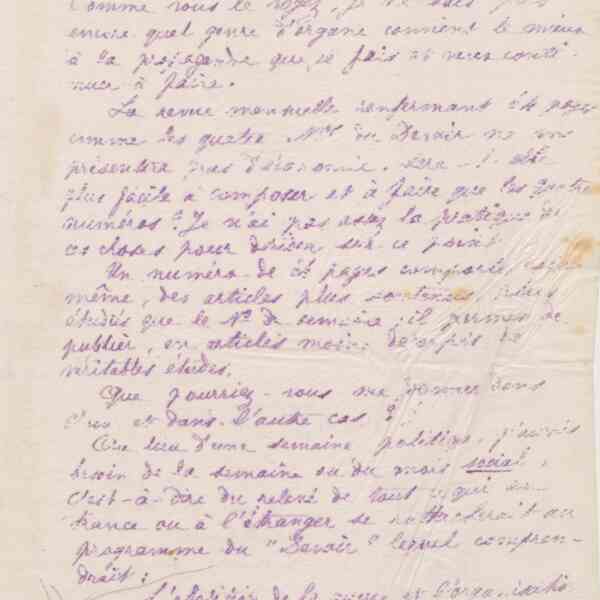 comme vous le voyez, je ne sais pas
encore quel genre d'organe convient le mieux
à la propagande que je fais et veux conti-
nuer à faire.
La revue mensuelle renfermant 64 pages
comme les quatre Nos du Devoir ne me
présentera pas d'économie. sera-t-elle
plus facile à composer et à faire que les quatre
numéros ? Je n'ai pas assez la pratique de
ces choses pour décider sur ce point.
Un numéro de 64 pages comporte
même, des articles plus soutenus, plus
étudiés que le No de semaine ; il permet de
publier, en articles moins de
véritables études.
Que pourriez-vous me donner dans
l'un et dans l'autre cas ?
Au lieu d'une semaine politique, j'aurais
besoin de la semaine ou du mois social,
c'est-à-dire du relevé de tout ce qui en
France ou à l'étranger se rattacherait au
programme du "Devoir" lequel compren-
drait :
de la et l'organisation